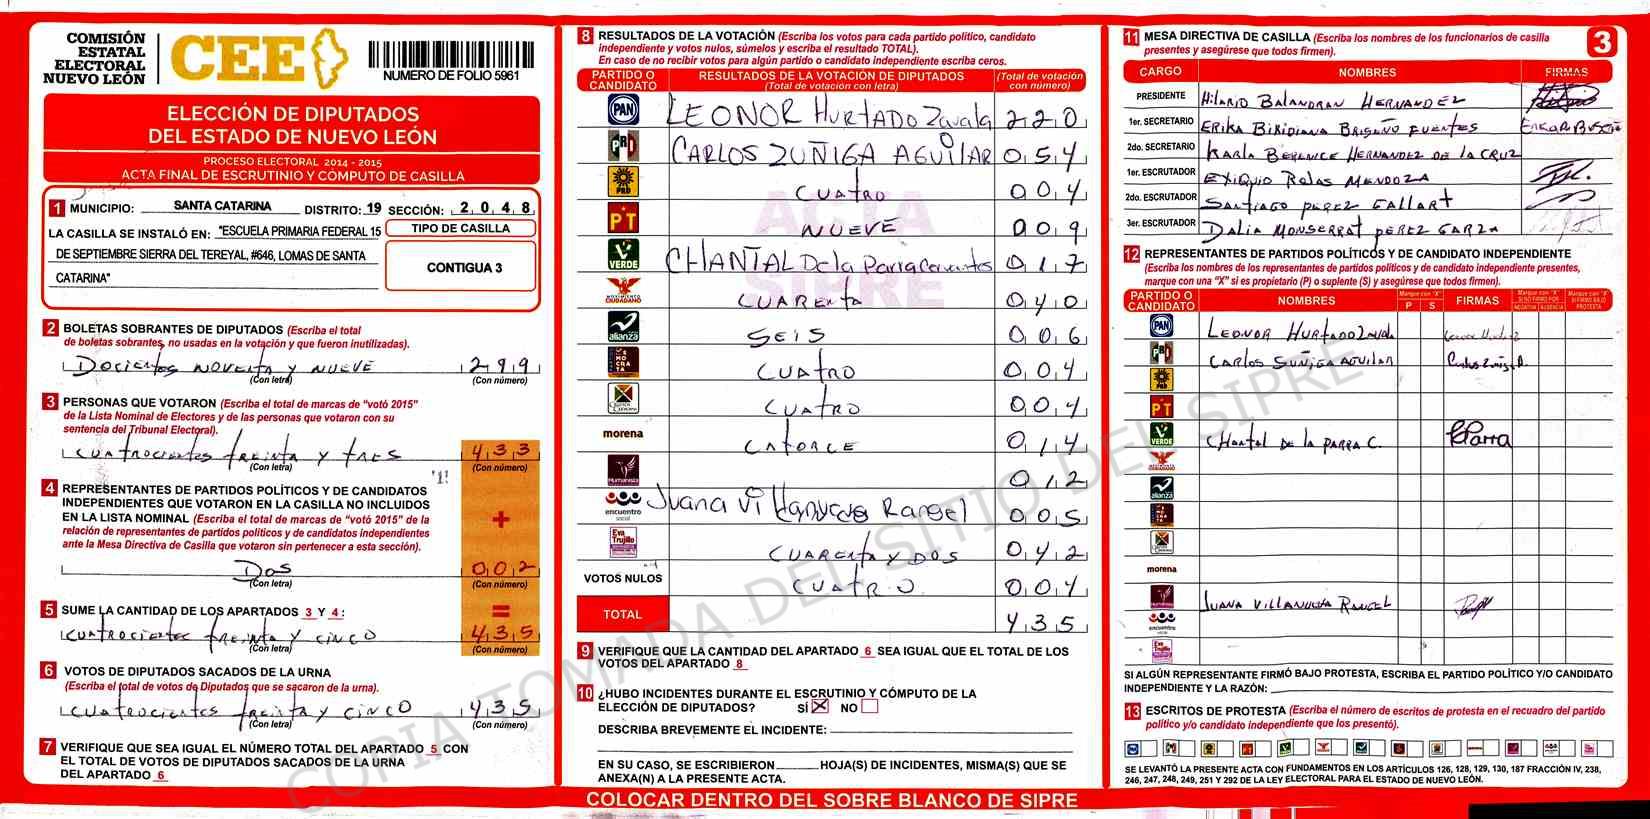 COMISIÓN
ESTATAL
ELECTORAL
NUEVO LEÓN
CEE
NUMERO DE FOLIO 5961
ELECCIÓN DE DIPUTADOS
DEL ESTADO DE NUEVO LEÓN
PROCESO ELECTORAL 2014 - 2015
ACTA FINAL DE ESCRUTINIO Y CÓMPUTO DE CASILLA
1 MUNICIPIO: SANTA CATARINA DISTRITO: 19 SECCIÓN: 2 0 4 8
LA CASILLA SE INSTALÓ EN: "ESCUELA PRIMARIA FEDERAL 15
DE SEPTIEMBRE SIERRA DEL TEREYAL, #646, LOMAS DE SANTA
CATARINA"
TIPO DE CASILLA
CONTIGUA 3
2 BOLETAS SOBRANTES DE DIPUTADOS (Escriba el total
de boletas sobrantes, no usadas en la votación y que fueron inutilizadas).
Docientos noventa y nueve 299
(Con letra) (Con número)
3 PERSONAS QUE VOTARON (Escriba el total de marcas de "votó 2015"
de la Lista Nominal de Electores y de las personas que votaron con su
sentencia del Tribunal Electoral).
Cuatrocientos treinta y tres 433
(Con letra) (Con número)
4 REPRESENTANTES DE PARTIDOS POLÍTICOS Y DE CANDIDATOS
INDEPENDIENTES QUE VOTARON EN LA CASILLA NO INCLUIDOS
EN LA LISTA NOMINAL (Escriba el total de marcas de "votó 2015" de la
relación de representantes de partidos políticos y de candidatos independientes
ante la Mesa Directiva de Casilla que votaron sin pertenecer a esta sección).
+
Dos 002
(Con letra) (Con número)
5 SUME LA CANTIDAD DE LOS APARTADOS 3 Y 4: =
Cuatrocientos treinta y cinco 435
(Con letra) (Con número)
6 VOTOS DE DIPUTADOS SACADOS DE LA URNA
(Escriba el total de votos de Diputados que se sacaron de la urna).
Cuatrocientos treinta y cinco 435
(Con letra) (Con número)
7 VERIFIQUE QUE SEA IGUAL EL NÚMERO TOTAL DEL APARTADO 5 CON
EL TOTAL DE VOTOS DE DIPUTADOS SACADOS DE LA URNA
DEL APARTADO 6
8 RESULTADOS DE LA VOTACIÓN (Escriba los votos para cada partido político, candidato
independiente y votos nulos, súmelos y escriba el resultado TOTAL).
En caso de no recibir votos para algún partido o candidato independiente escriba ceros.
PARTIDO O CANDIDATO RESULTADOS DE LA VOTACIÓN DE DIPUTADOS (Total de votación con letra) (Total de votación con número)
PAN LEONOR HURTADO Zavala 220
PRI CARLOS ZUÑIGA AGUILAR 054
PRD CUATRO 004
PT NUEVE 009
VERDE CHANTAL De la Parra Cervantes 017
MOVIMIENTO CIUDADANO CUARENTA 040
alianza SEIS 006
DEMOCRATA CUATRO 004
CUATRO 004
morena CATORCE 014
Humanista 012
encuentro social Juana Villanueva Rangel 005
Eva Trujillo CUARENTA Y DOS 042
VOTOS NULOS CUATRO 004
TOTAL 435
ACTA
SIPRE
9 VERIFIQUE QUE LA CANTIDAD DEL APARTADO 6 SEA IGUAL QUE EL TOTAL DE LOS
VOTOS DEL APARTADO 8
10 ¿HUBO INCIDENTES DURANTE EL ESCRUTINIO Y CÓMPUTO DE LA
ELECCIÓN DE DIPUTADOS? SÍ X NO
DESCRIBA BREVEMENTE EL INCIDENTE:
EN SU CASO, SE ESCRIBIERON HOJA(S) DE INCIDENTES, MISMA(S) QUE SE
ANEXA(N) A LA PRESENTE ACTA.
COLOCAR DENTRO DEL SOBRE BLANCO DE SIPRE
11 MESA DIRECTIVA DE CASILLA (Escriba los nombres de los funcionarios de casilla
presentes y asegúrese que todos firmen).
3
CARGO NOMBRES FIRMAS
PRESIDENTE Hilario Balandran HERNANDEZ
1er. SECRETARIO ERIKA BIRIDIANA BRISEÑO FUENTES
2do. SECRETARIO Karla BERENICE HERNANDEZ DE LA CRUZ
1er. ESCRUTADOR EXIQUIO Rojas MENDOZA
2do. ESCRUTADOR SANTIAGO PEREZ GALLART
3er. ESCRUTADOR DALIA MONSERRAT PEREZ GARZA
12 REPRESENTANTES DE PARTIDOS POLÍTICOS Y DE CANDIDATO INDEPENDIENTE
(Escriba los nombres de los representantes de partidos políticos y de candidato independiente presentes,
marque con una "X" si es propietario (P) o suplente (S) y asegúrese que todos firmen).
PARTIDO O CANDIDATO NOMBRES Marque con "X" P S FIRMAS Marque con "X" SI NO FIRMÓ POR NEGATIVA AUSENCIA Marque con "X" SI FIRMÓ BAJO PROTESTA
PAN LEONOR HURTADO Zavala
PRI CARLOS SUÑIGA AGUILAR
PRD
PT
VERDE Chantal DE LA PARRA C. Parra
alianza
morena
Humanista JUANA VILLANUEVA RANGEL
encuentro social
Eva Trujillo
SI ALGÚN REPRESENTANTE FIRMÓ BAJO PROTESTA, ESCRIBA EL PARTIDO POLÍTICO Y/O CANDIDATO
INDEPENDIENTE Y LA RAZÓN:
13 ESCRITOS DE PROTESTA (Escriba el número de escritos de protesta en el recuadro del partido
político y/o candidato independiente que los presentó).
SE LEVANTÓ LA PRESENTE ACTA CON FUNDAMENTOS EN LOS ARTÍCULOS 126, 128, 129, 130, 187 FRACCIÓN IV, 238,
246, 247, 248, 249, 251 Y 292 DE LA LEY ELECTORAL PARA EL ESTADO DE NUEVO LEÓN.
COPIA TOMADA DEL SITIO DEL SIPRE